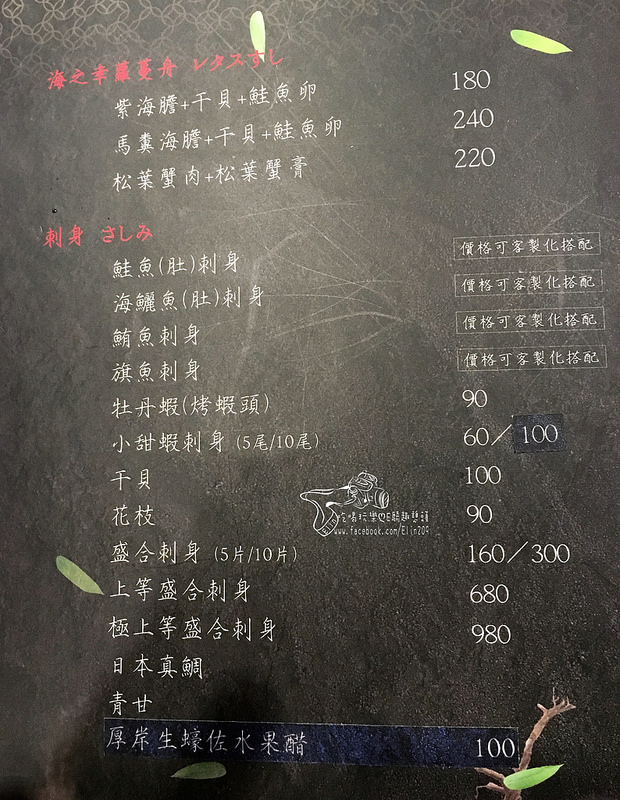 海之幸蘿蔓舟 レタスすし
紫海膽+干貝+鮭魚卵 180
馬糞海膽+干貝+鮭魚卵 240
松葉蟹肉+松葉蟹膏 220
刺身 さしみ
鮭魚(肚)刺身 價格可客製化搭配
海鱺魚(肚)刺身 價格可客製化搭配
鮪魚刺身 價格可客製化搭配
旗魚刺身 價格可客製化搭配
牡丹蝦(烤蝦頭) 90
小甜蝦刺身 (5尾/10尾) 60/100
干貝 100
花枝 90
盛合刺身 (5片/10片) 160/300
上等盛合刺身 680
極上等盛合刺身 980
日本真鯛
青甘
厚岸生蠔佐水果醋 100
吃喝玩樂
www.facebook.com/Elin209